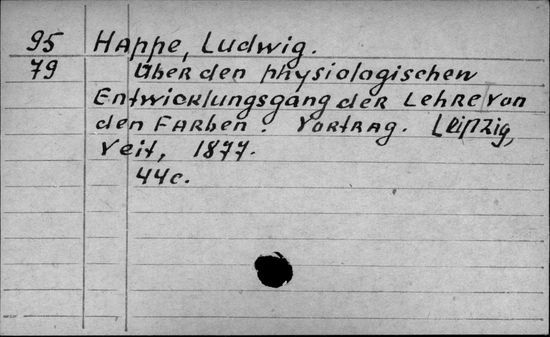 95 Happe, Ludwig.
79 Über den physiologischen
Entwicklungsgang der Lehre von
den Farben. Vortrag. Leipzig,
Veit, 1877.
44c.